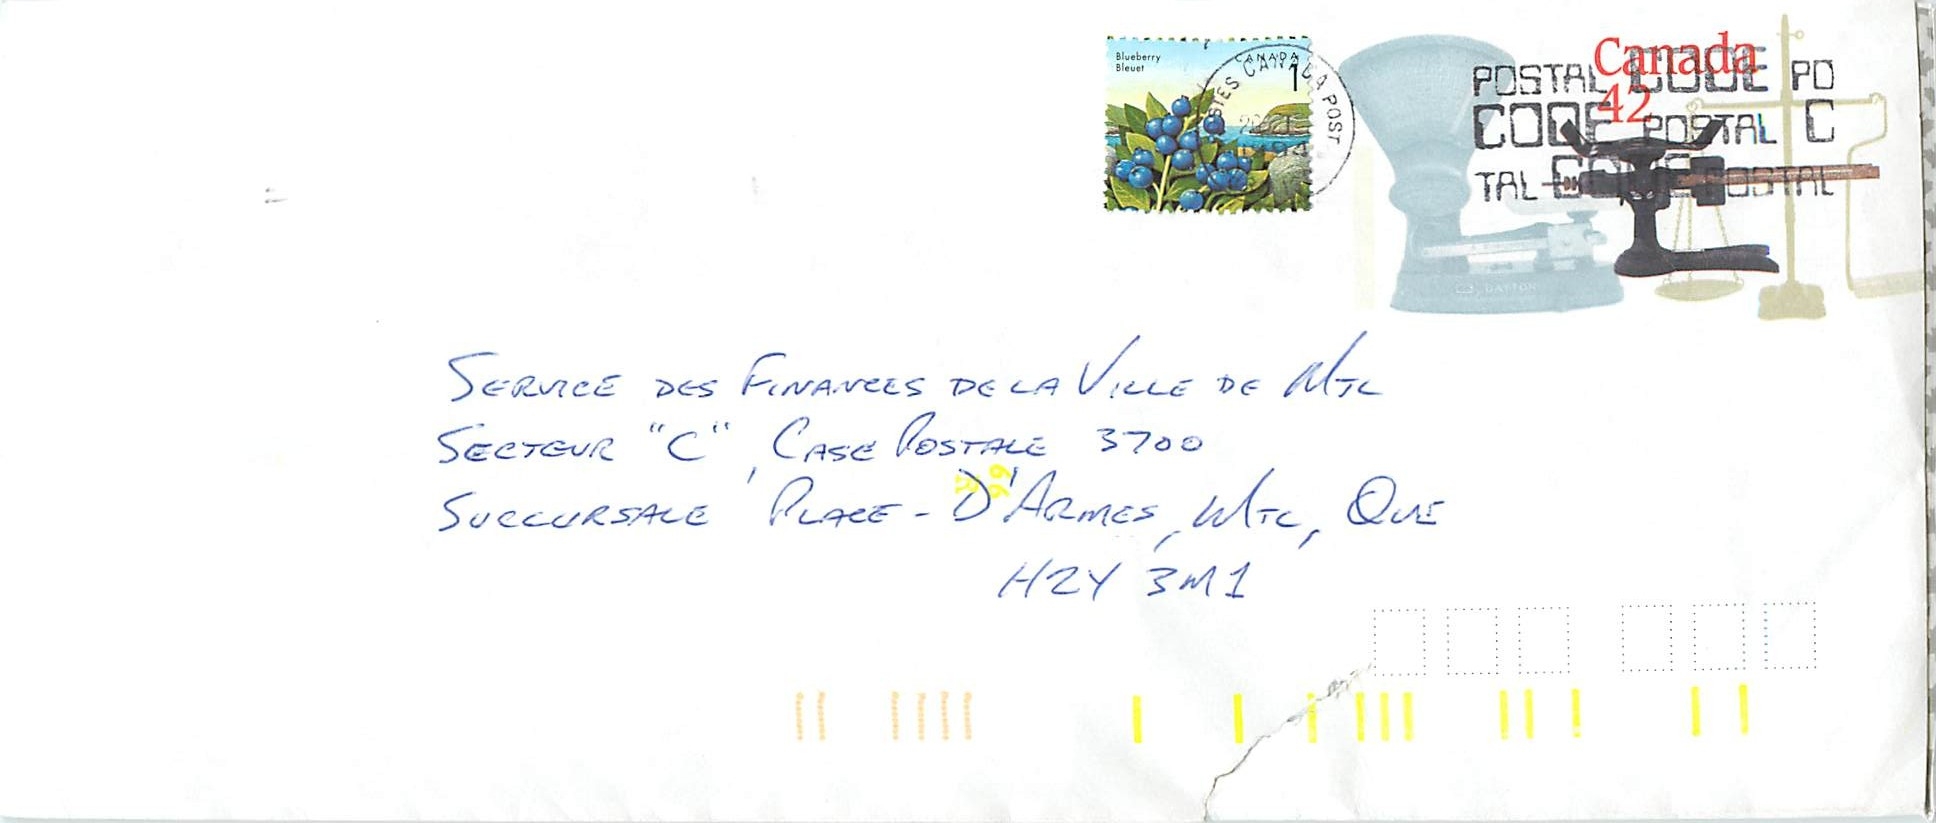 Blueberry
Bleuet
CANADA
1
POSTES CANADA POST
Canada
42
POSTAL CODE PO
CODE POSTAL C
TAL CODE POSTAL
DAYTON
SERVICE DES FINANCES DE LA VILLE DE MTL
SECTEUR "C", CASE POSTALE 3700
SUCCURSALE PLACE-D'ARMES, MTL, QUE
H2Y 3M1